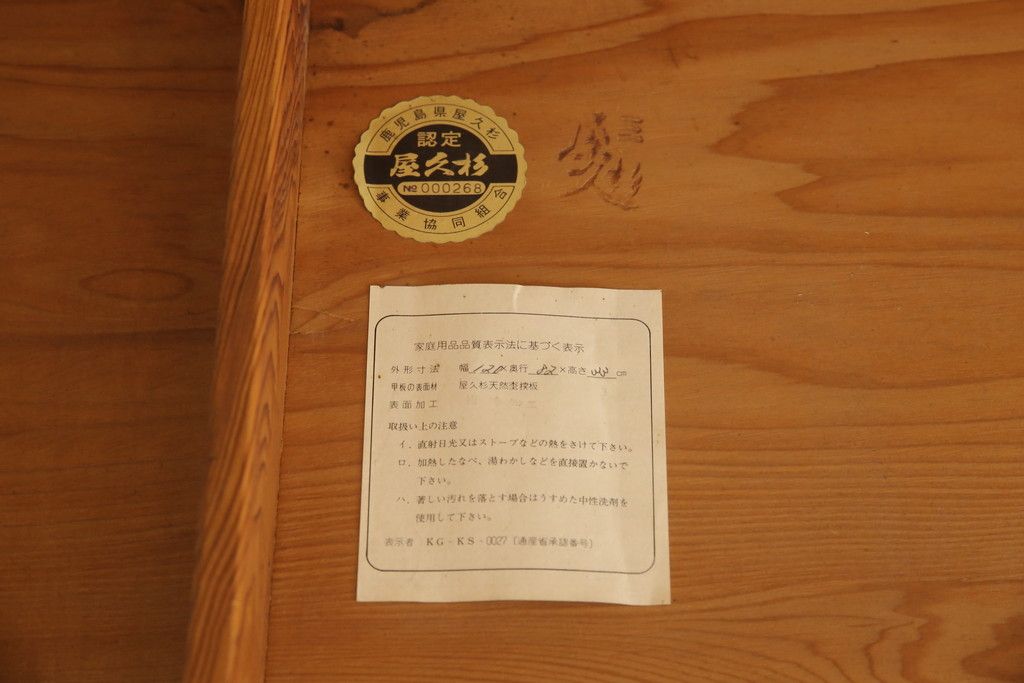 鹿児島県屋久杉
認定
屋久杉
№000268
事業協同組合
家庭用品品質表示法に基づく表示
外形寸法 幅120×奥行82×高さ33cm
甲板の表面材 屋久杉天然杢挽板
表面加工
取扱い上の注意
イ. 直射日光又はストーブなどの熱をさけて下さい。
ロ. 加熱したなべ、湯わかしなどを直接置かないで
下さい。
ハ. 著しい汚れを落とす場合はうすめた中性洗剤を
使用して下さい。
表示者 KG-KS-0027 [通産省承認番号]